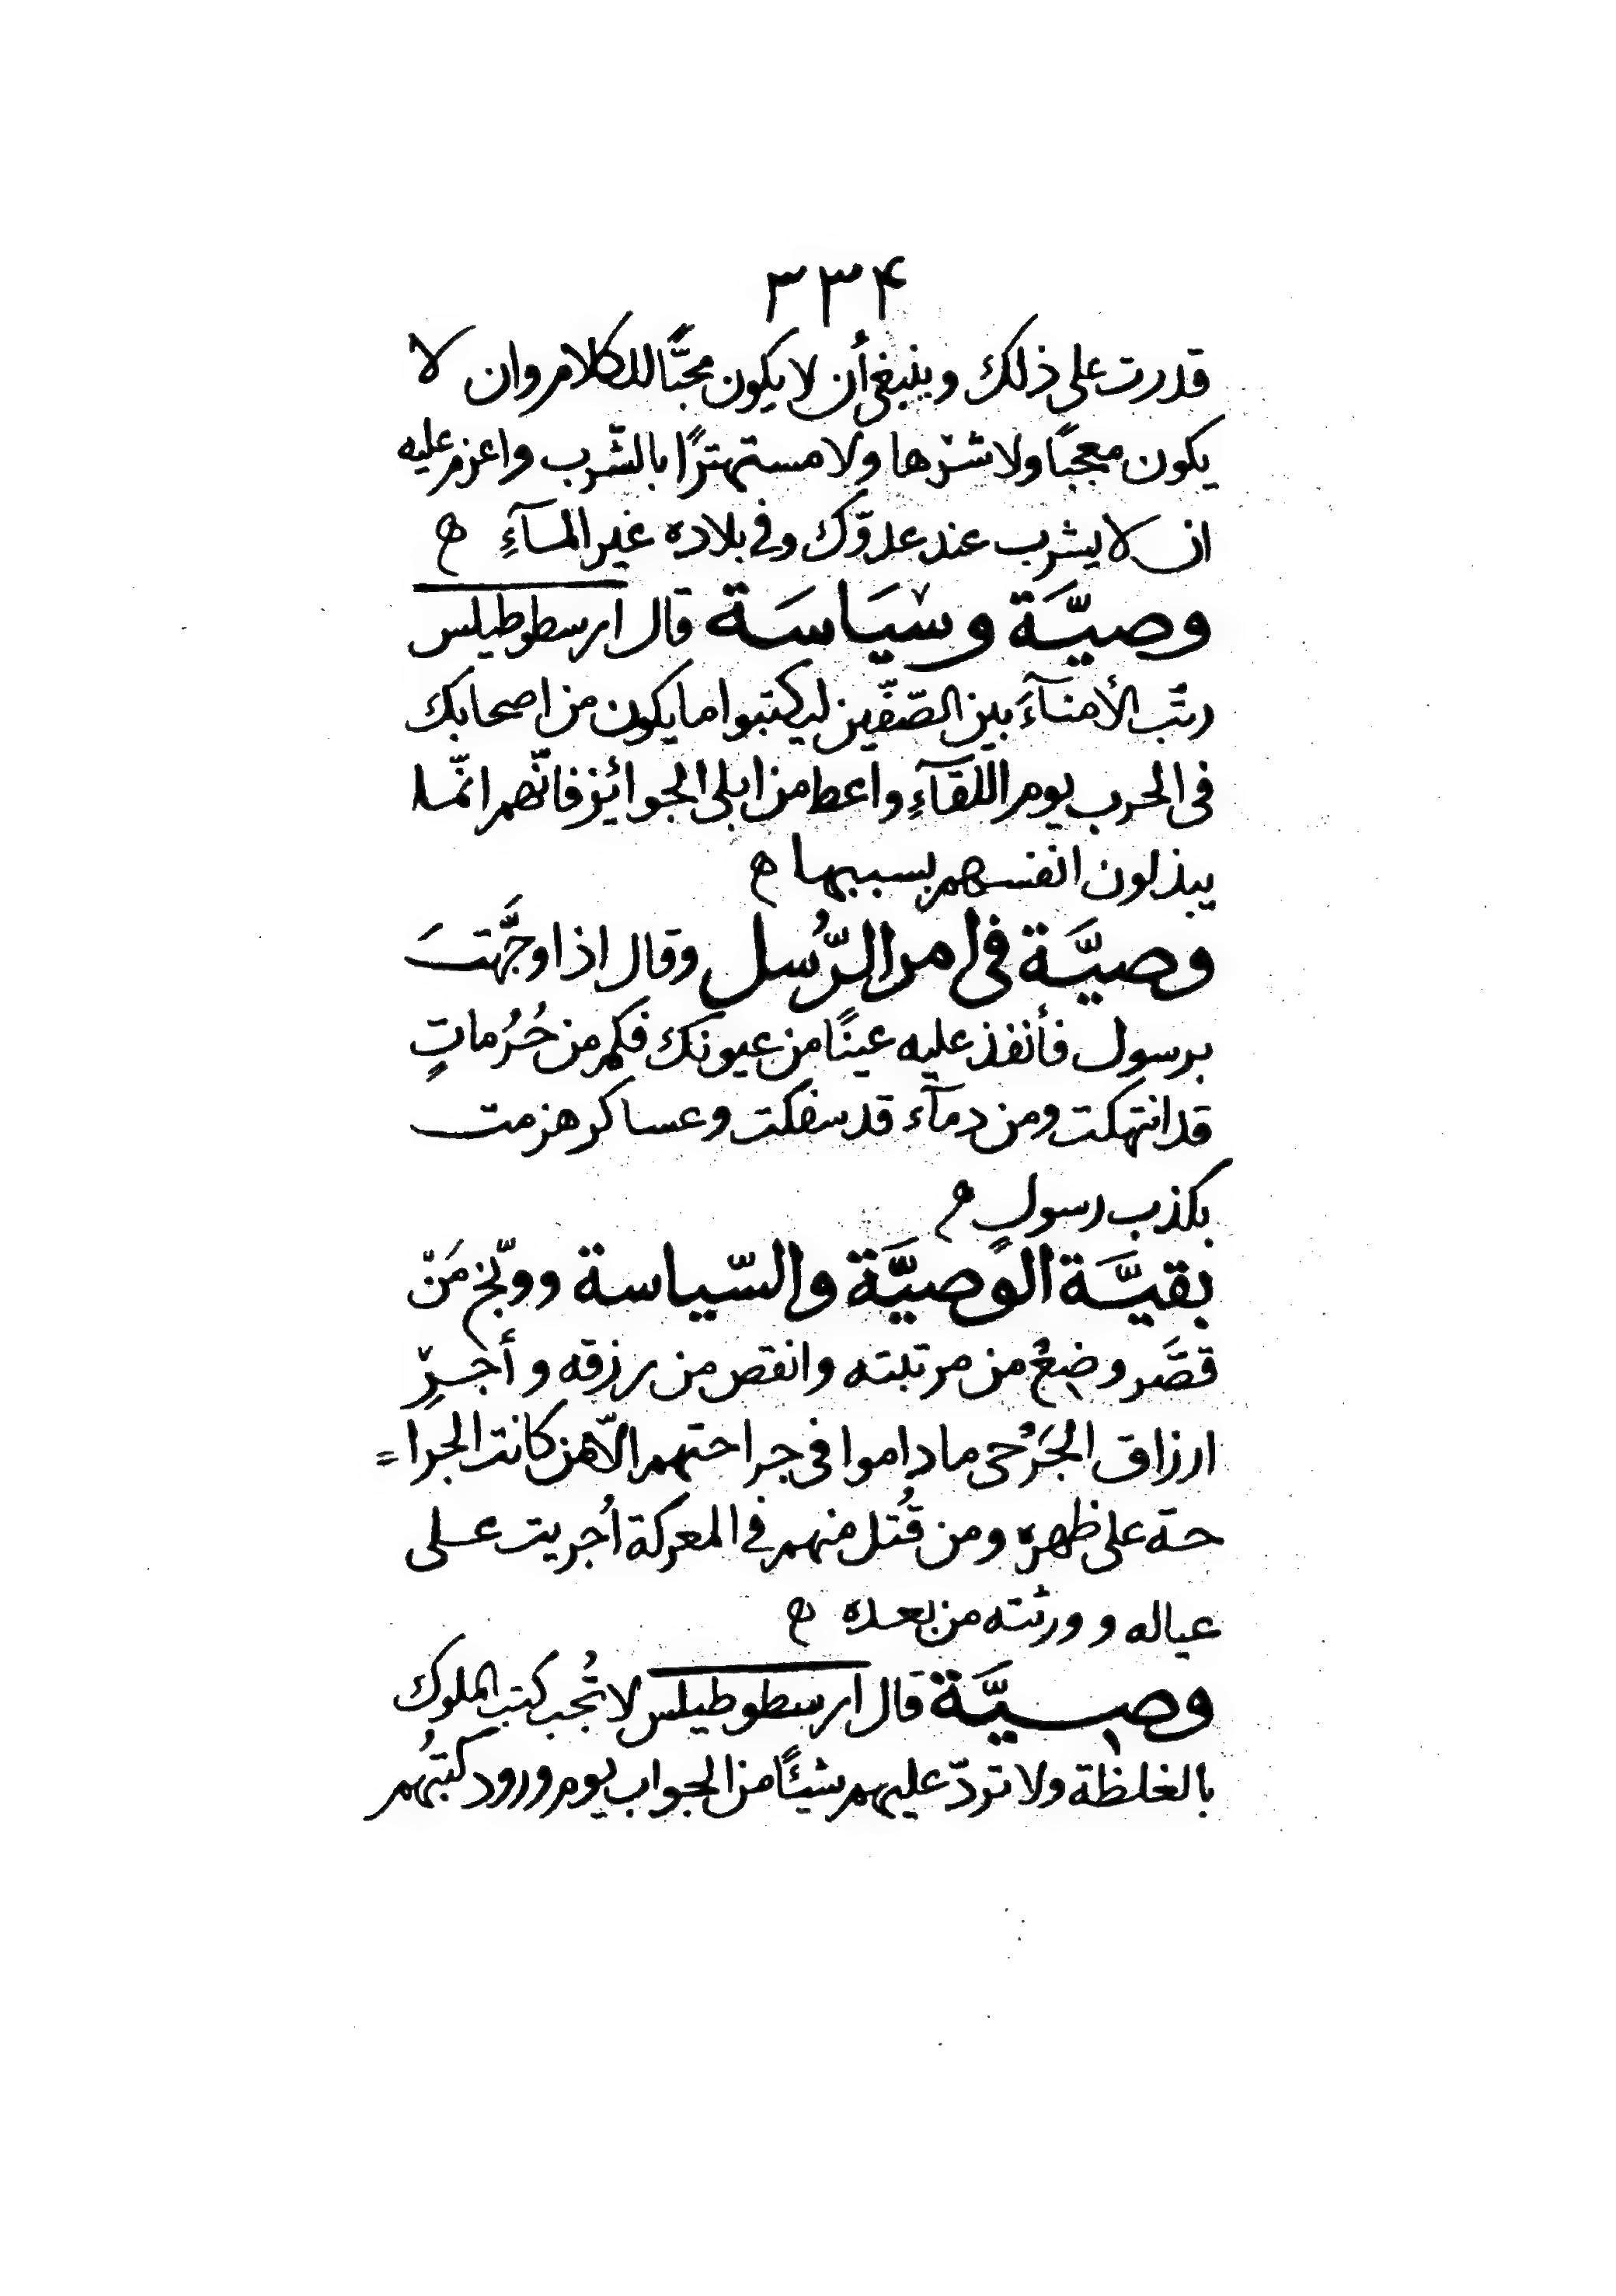 ۳۳۴
قدرت على ذلك وينبغى أن لا يكون محبًّا للكلام وان لا
يكون معجبًا ولا شرّها ولا مستهترًا بالشّرب واعزم عليه
ان لا يشرب عند عدوّك وفى بلاده غير المآءِ ه
وصيَّة وسيَاسَة قال ارسطوطيلس
رتّب الأمنآءَ بين الصّفّين ليكتبوا ما يكون من اصحابك
فى الحرب يوم اللّقآءِ واعط من ابلى الجوائيز فانّهم انّما
يبذلون انفسهم بسببها ه
وصيَّة فى امر الرُّسل وقال اذا وجَّهتَ
برسول فأنفذ عليه عينًا من عيونك فكم من حُرُماتٍ
قد انتهكت ومن دمآء قد سفكت وعساكر هزمت
بكذب رسولٍ م
بقيَّة الوصيَّة والسّياسة ووبّخ مَنْ
قصَّر وضِعْ من مرتبته وانقص من رزقه وأجرِ
ارزاق الجَرْحى ما داموا فى جراحتهم الّا من كانت الجرا=
حة على ظهره ومن قُتل منهم فى المعركة اُجريت على
عياله وورثته من بعده ه
وصيَّة قال ارسطوطيلس لا تُجب كتب الملوك
بالغلظة ولا تردّ عليهم شيئًا من الجواب يوم ورود كتبُهم